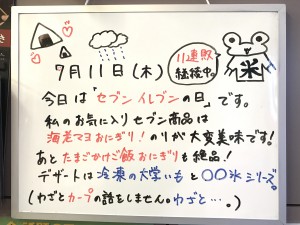 11連敗
継続中。
米
7月11日(木)
今日は「セブンイレブンの日」です。
私のお気に入りセブン商品は
海老マヨおにぎり!のりが大変美味です!
あとたまごかけご飯おにぎりも絶品!
デザートは冷凍の大学いもと〇〇氷シリーズ。
(わざとカープの話をしません。わざと…。)